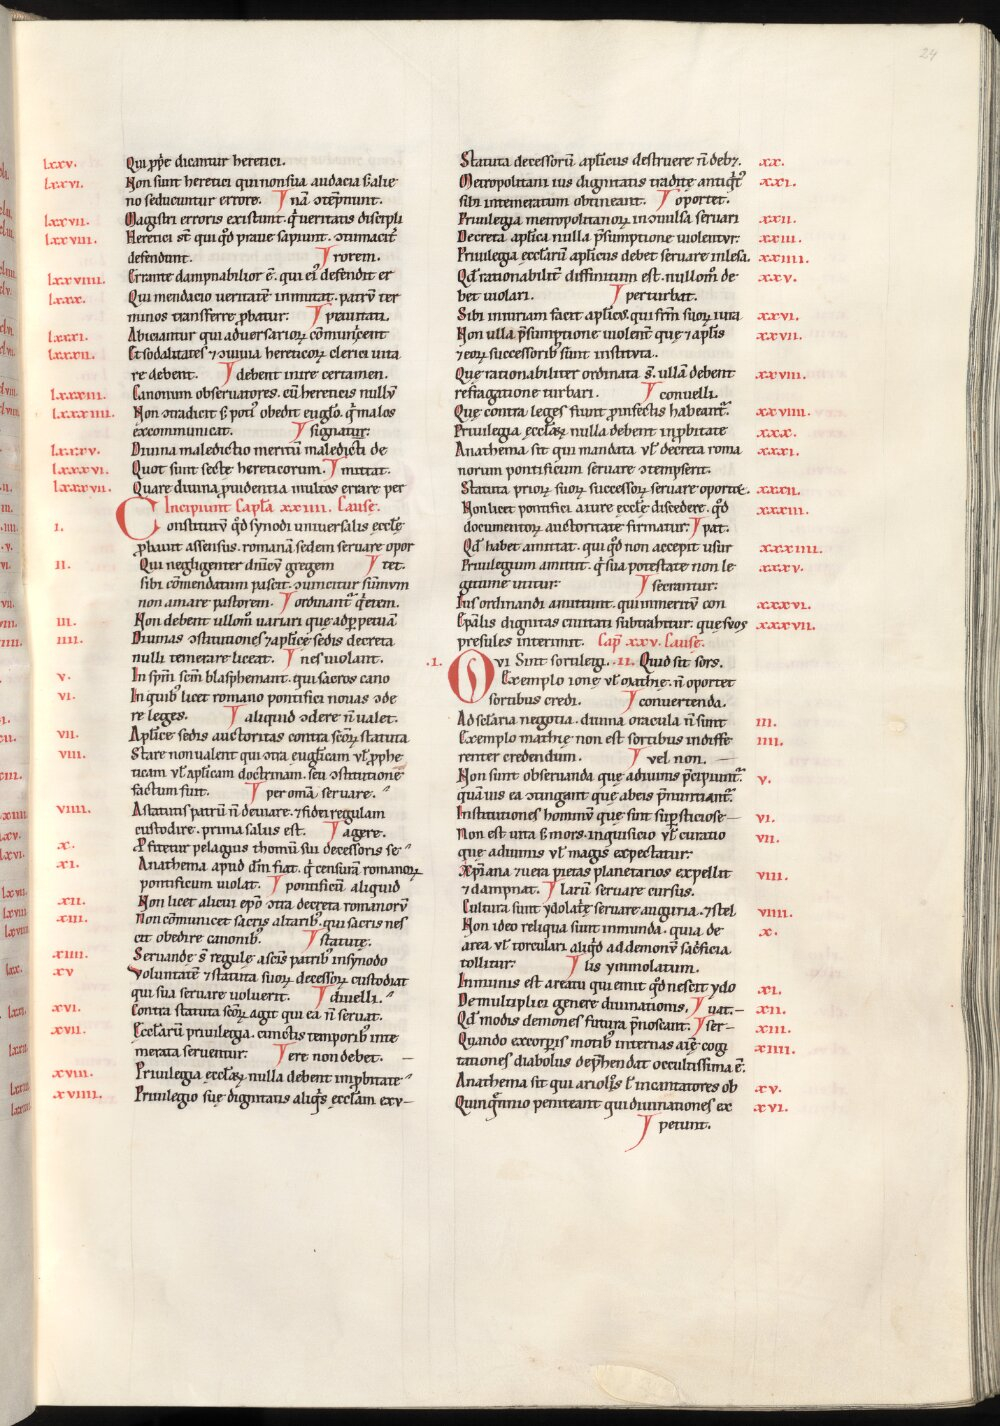 24
lxxv. Qui ꝓp̄e dicantur heretici.
lxxvi. Non sunt heretici qui non sua audacia s; alie
no seducuntur errore. nā ↄtēpnunt.
lxxvii. Magistri erroris existunt. q̄ ueritatis discipli
lxxviii. Heretici st̄ qui qd̄ praue sapiunt. ↄtumacit̄
defendunt. rorem.
lxxviiii. Errante dampnabilior ē. qui ei defendit er
lxxx. Qui mendacio ueritatē inmutat. patrū ter
minos transferre ꝓbatur. prauitati.
lxxxi. Abiciantur qui adversarioꝝ cōmuni̅cent
lxxxii. Et sodalitates ⁊ ↄuiuia hereticoꝝ clerici uita
re debent. debent inire certamen.
lxxxiii. Canonum observatores. cū hereticis nullū
lxxxiiii. Non ↄtradicit s; poti' obedit eug̅lo. q̄ malos
excommunicat. signatur:
lxxxv. Diuina maledictio meritū maledicti de
lxxxvi. Quot sunt sectę hereticorum. mittat.
lxxxvii. Quare diuina ꝓuidentia multos errare per
Incipiunt Capl̄a xxiiii. Cause.
i. Constitutū qd̄ synodi uniuersalis eccl̄ę
ꝓbauit assensus. romanā sedem seruare opor
ii. Qui negligenter dn̄icū gregem tet.
sibi cōmendatum pascit. ↄuincitur sum̄vm
non amare pastorem. ordinant' q̄rem.
iii. Non debent ullom̄ uariari que adp̱petuā
iiii. Diuinas ↄstitutiones ⁊ apl̄icę sedis decreta
nulli temerare liceat. nes uiolant.
v. In sp̄m sc̄m blasphemant. qui sacros cano
vi. In quib' licet romano pontifici nouas ↄde
re leges. aliquid ↄdere n̄ ualet.
vii. Apl̄icę sedis auctoritas contra sc̄oꝝ statuta
viii. Stare non ualent qui ↄtra eug̅licam ul̄ ꝓphe
ticam ul̄ apl̄icam doctrinam. seu ↄstitutionē
factum fuit. per om̄a seruare.
viiii. A statutis patrū n̄ deuiare. ⁊ fidei regulam
custodire. prima salus est. agere.
x. Pfitetur pelagius thomū sui decessoris se
xi. Anathema apud dm̄ fiat. q̄ censurā romanoꝝ
pontificum uiolat. pontificū aliquid
xii. Non licet alicui ep̄o ↄtra decreta romanorū
xiii. Non cōmunicet sacris altarib'. qui sacris nes
cit obedire canonib'. statutę.
xiiii. Seruandę s̄ regulę a sc̄is patrib' in synodo
xv Voluntatē ⁊ statuta suoꝝ decessoꝝ custodiat
qui sua seruare uoluerit. diuelli.
xvi. Contra statuta sc̄oꝝ agit qui ea n̄ seruat.
xvii. Eccl̄arū priuilegia. cunctis temporib' inte
merata seruentur: ere non debet.
xviii. Priuilegia eccl̄aꝝ nulla debent inp̱bitate
xviiii. Priuilegio suę dignitatis aliq̄s eccl̄am exv
Statuta decessorū apl̄icus destruere n̄ debꝫ. xx.
Metropolitani ius dignitatis traditę antiq̄t' xxi.
sibi intemeratum obtineant. oportet.
Priuilegia metropolitanoꝝ inↄuulsa seruari xxii.
Decreta apl̄ica nulla p̄sumptione uiolentvr: xxiii.
Priuilegia eccl̄arū apl̄icus debet seruare inlesa. xxiiii.
Qd̄ rationabilit̄ diffinitum est. nullom̄ de xxv.
bet uiolari. perturbat.
Sibi iniuriam facit apl̄ic'. qui fr̄m suoꝝ iura xxvi.
Non ulla p̄sumptione uiolent' que ⁊ apl̄is xxvii.
⁊ eoꝝ successorib' sunt institvta.
Que rationabiliter ordinata s̄. ulla n̄ debent xxviii.
refragatione turbari. conuelli.
Que contra leges fiunt ꝓ infectis habeant'. xxviiii.
Priuilegia eccl̄aꝝ nulla debent inp̱bitate xxx.
Anathema sit qui mandata ul̄ decreta roma xxxi.
norum pontificum seruare ↄtempserit.
Statuta prioꝝ suoꝝ successoꝝ seruare oportꝫ. xxxii.
Non licet pontifici a iure eccl̄ę discedere. qd̄ xxxiii.
documentoꝝ auctoritate firmatur: pat.
Qd̄ habet amittat. qui qd̄ non accepit usur xxxiiii.
Priuilegium amittit. q̄ sua potestate non le xxxv.
gitime utitur: secrantur.
Ius ordinandi amittunt. qui inmeritū con xxxvi.
Ep̄alis dignitas ciuitati subtrahitur. que svos xxxvii.
presules interimit. Cap̄ xxv. Cause.
.i. Qvi Sint sortilegi. .ii. Quid sit sors.
Exemplo ionę ul̄ mathię. n̄ oportet
sortibus credi. conuertenda.
Ad sc̄laria negotia. diuina oracula n̄ sunt iii.
Exemplo mathię non est sortibus indiffe iiii.
renter credendum. vel non.
Non sunt obseruanda quę a diuinis p̄cipiunt'. v.
quāuis ea ↄtingant quę ab eis p̄nuntiant'.
Institutiones hominū quę sint sup̱sticiose vi.
Non est uita s; mors. inquisicio ul̄ curatio vii.
quę a diuinis ul̄ magis expectatur:
Xp̄iana ⁊ uera pietas planetarios expellit viii.
⁊ dampnat. larū seruare cursus.
Cultura sunt ydolatrię seruare auguria. ⁊ stel viiii.
Non ideo reliqua sunt inmunda. quia de x.
area ul̄ torculari aliq̄d ad demonū sac̄ficia
tollitur: lis ymmolatum.
Inmunis est a reatu qui emit qd̄ nescit ydo xi.
De multiplici genere diuinationis. uat. xii.
Qd̄ modis demones futura p̄noscant. ser xiii.
Quando ex corꝑis motib' internas aīę cogi xiiii.
tationes diabolus dep̄hendat occultissima ē.
Anathema sit qui arioł̄s ł incantatores ob xv.
Quinq̄nnio peniteant qui diuinationes ex xvi.
petunt.